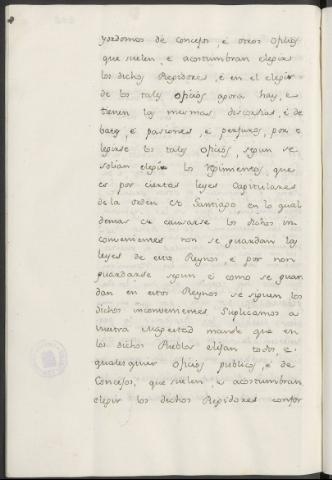 yordomos de concejo, e otros oficios
que suelen, e acostumbran elegir
los dichos Regidores, e en el elegir
de los tales oficios agora hay, e
tienen las mesmas discordias, e de
bates e pasiones, e perjuros, por e
legirse los tales oficios, segun se
solian elegir los Regimientos, que
es por ciertas leyes Capitulares
de la orden de Santiago, en lo qual
demas de causarse los dichos in
convenientes non se guardan las
leyes de estos Reynos, e por non
guardarse segun e como se guar
dan en estos Reynos se siguen los
dichos inconvenientes. Suplicamos a
vuestra Magestad mande que en
los dichos Pueblos elijan todos, e
qualesquier oficios publicos, e de
Concejo, que suelen, e acostumbran
elegir los dichos Regidores confor